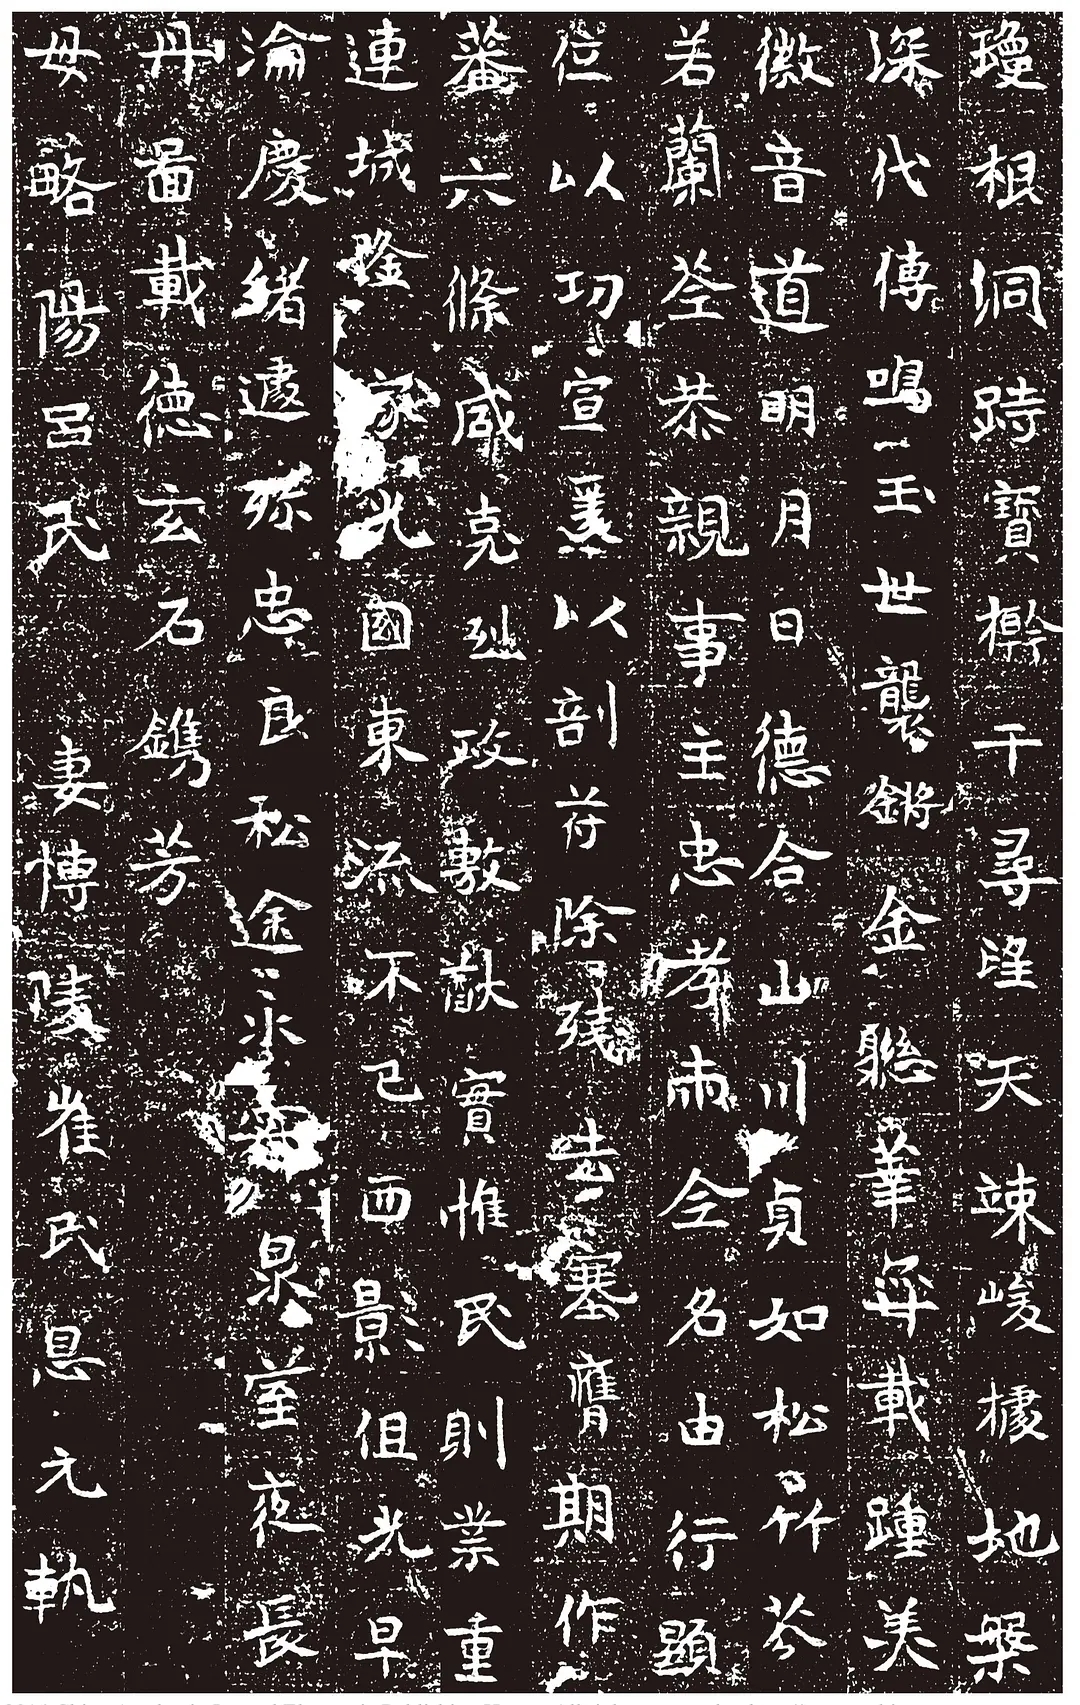 瓊根洞跱寶樹干尋望天竦峻據地槃
深代傳鳴玉世襲鏘金聯華每載踵美
徽音道明月日德合山川貞如松竹芬
若蘭荃恭親事主忠孝兩全名由行顯
位以功宣爰以剖符除殘去塞膺期作
蕃六條咸克烈政敷猷實惟民則業重
連城隆家光國東流不已西景俎光早
淪慶緒遽殄忠良松途泉堂夜長
丹圖載德玄石鐫芳
母略陽呂氏 妻博陵崔氏息元執